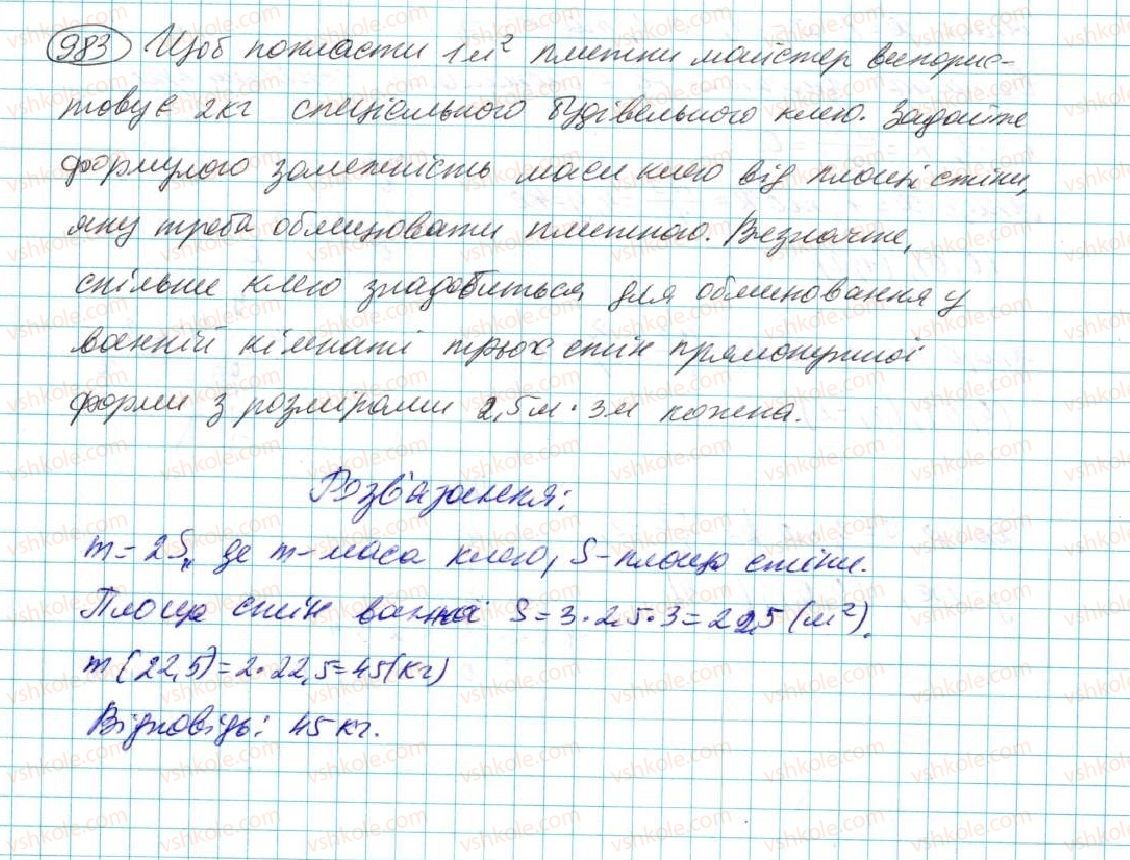 983 Щоб покласти 1 м² плитки майстер викорис-
товує 2 кг спеціального будівельного клею. Задайте
формулою залежність маси клею від площі стіни,
яку треба облицювати плиткою. Визначте,
скільки клею знадобиться для облицювання у
ванній кімнаті трьох стін прямокутної
форми з розмірами 2,5 м · 3 м кожна.
Розв'язання:
m = 2S, де m – маса клею, S – площа стіни.
Площа стін ванної S = 3 · 2,5 · 3 = 22,5 (м²).
m(22,5) = 2 · 22,5 = 45 (кг)
Відповідь: 45 кг.
vshkole.com